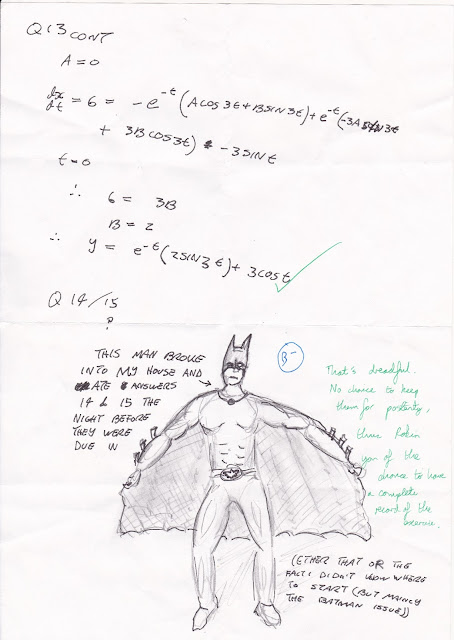 Q13 CONT
A = 0
dx/dt = 6 = -e^-t (A COS 3t + B SIN 3t) + e^-t (-3A SIN 3t
+ 3B COS 3t) - 3 SIN t
t = 0
∴ 6 = 3B
B = 2
∴ y = e^-t (2 SIN 3t) + 3 COS t
Q 14/15
?
THIS MAN BROKE
INTO MY HOUSE AND
ATE ANSWERS
14 & 15 THE
NIGHT BEFORE
THEY WERE
DUE IN
B-
That's dreadful.
No chance to keep
them for posterity,
thus Robin
you of the
chance to have
a complete
record of the
exercise.
(ETHER THAT OR THE
FACT I DIDN'T KNOW WHERE
TO START (BUT MAINLY
THE BATMAN ISSUE))